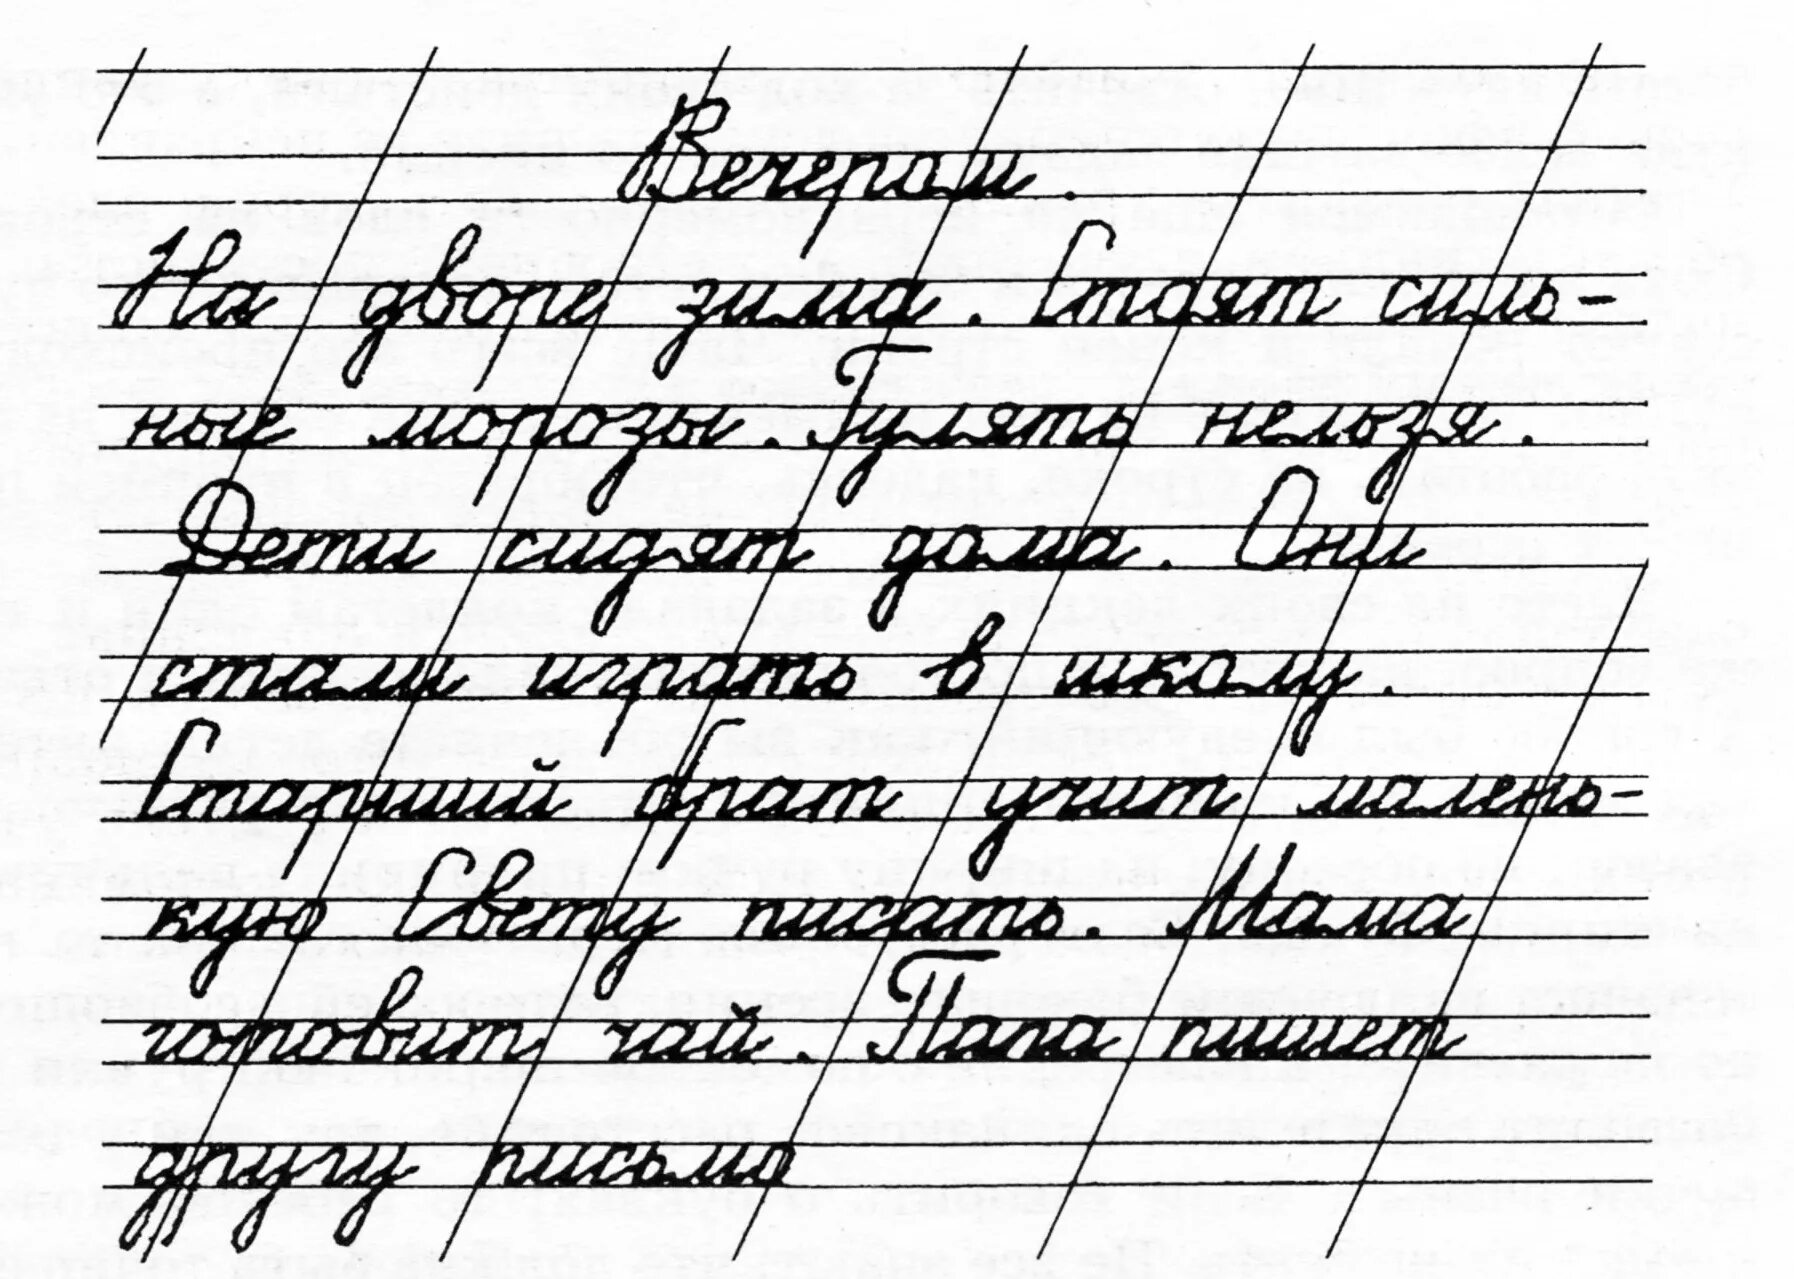 Вечером.
На дворе зима. Стоят силь-
ные морозы. Гулять нельзя.
Дети сидят дома. Они
стали играть в школу.
Старший брат учит малень-
кую Свету писать. Мама
готовит чай. Папа пишет
другу письмо